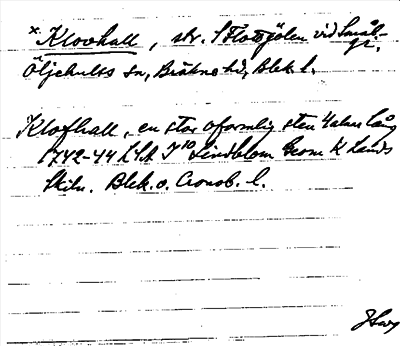 × Klovhall, str. i Flottgölen vid Smål.-
gr.
Öljehults sn, Bräkne hd, Blek. l.
Klofhall, en stor oformlig sten 4 alnar lång
1742-44 LSA I 10 Lindblom Geom K Lands
skiln. Blek. o. Cronob. l.